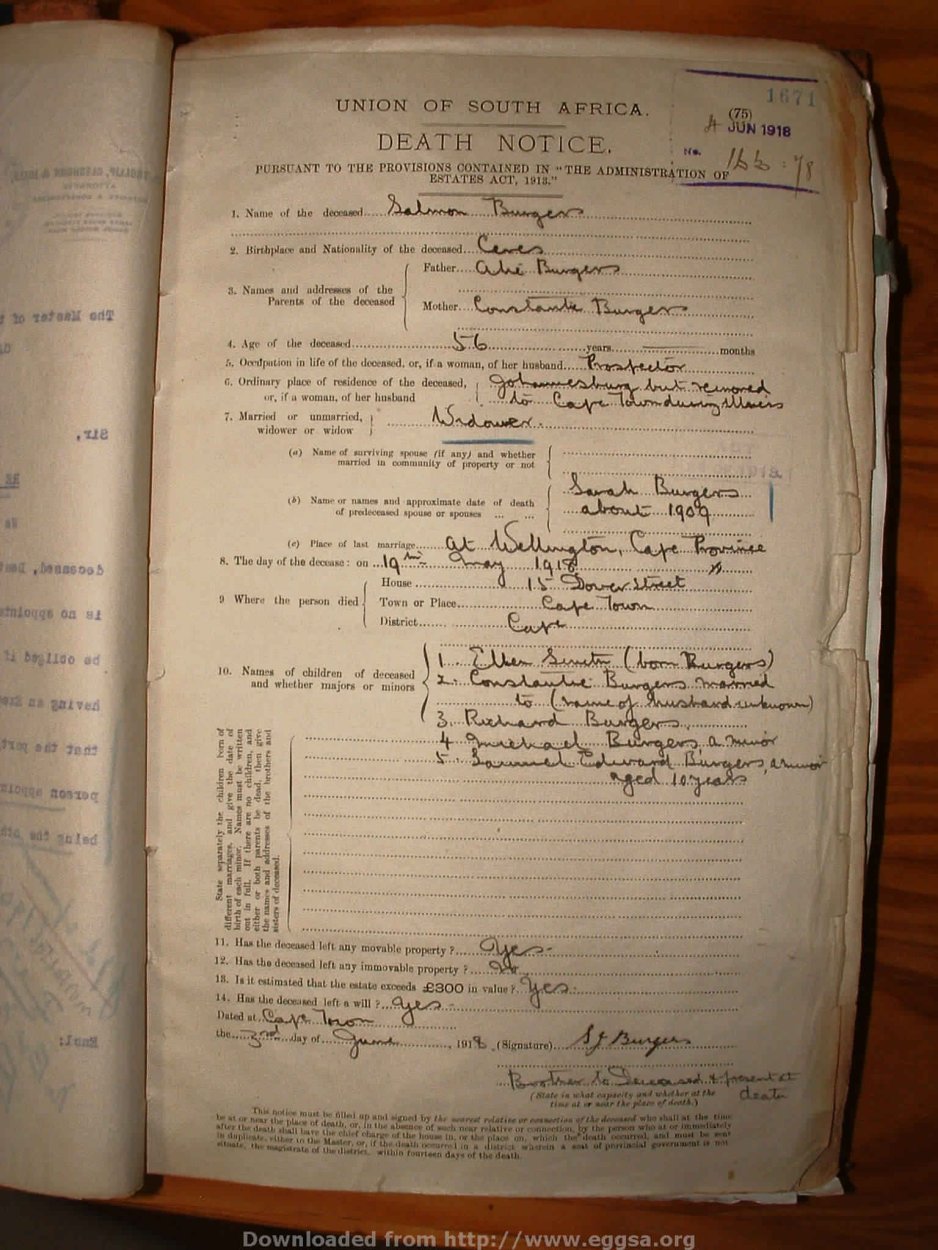 1671
UNION OF SOUTH AFRICA.
(75)
4 JUN 1918
DEATH NOTICE.
No.
PURSUANT TO THE PROVISIONS CONTAINED IN "THE ADMINISTRATION OF
ESTATES ACT, 1913."
1. Name of the deceased Salmon Burgers
2. Birthplace and Nationality of the deceased Ceres
3. Names and addresses of the
Parents of the deceased
Father Burgers
Mother Constantia Burgers
4. Age of the deceased 56 years months
5. Occupation in life of the deceased, or, if a woman, of her husband Prospector
6. Ordinary place of residence of the deceased,
or, if a woman, of her husband
Johannesburg but removed
to Cape Town during illness
7. Married or unmarried,
widower or widow
Widower.
(a) Name of surviving spouse (if any) and whether
married in community of property or not
(b) Name or names and approximate date of death
of predeceased spouse or spouses
Sarah Burgers
about 1909
(c) Place of last marriage At Wellington, Cape Province
8. The day of the decease: on 19th May 1918
9 Where the person died
House 15 Dover Street
Town or Place Cape Town
District Cape
10. Names of children of deceased
and whether majors or minors
1. Ellen Smith (born Burgers)
2. Constantia Burgers married
to (name of husband unknown)
3. Richard Burgers
4 Michael Burgers a minor
5. Samuel Edward Burgers, a minor
aged 10 years
State separately the children born of
different marriages, and give the date of
birth of each minor. Names must be written
out in full. If there are no children, and
either or both parents be dead, then give
the names and addresses of the brothers and
sisters of deceased.
11. Has the deceased left any movable property? Yes
12. Has the deceased left any immovable property? No
13. Is it estimated that the estate exceeds £300 in value? Yes
14. Has the deceased left a will? Yes
Dated at Cape Town
the 3rd day of June 1918. (Signature) Burgers
Brother to Deceased & present at
death
(State in what capacity and whether at the
time at or near the place of death)
This notice must be filled up and signed by the nearest relative or connection of the deceased who shall at the time
be at or near the place of death, or, in the absence of such near relative or connection, by the person who at or immediately
after the death shall have the chief charge of the house in, or the place on, which the death occurred, and must be sent
in duplicate, either to the Master, or, if the death occurred in a district wherein a seat of provincial government is not
situate, the magistrate of the district, within fourteen days of the death.
Downloaded from http://www.eggsa.org